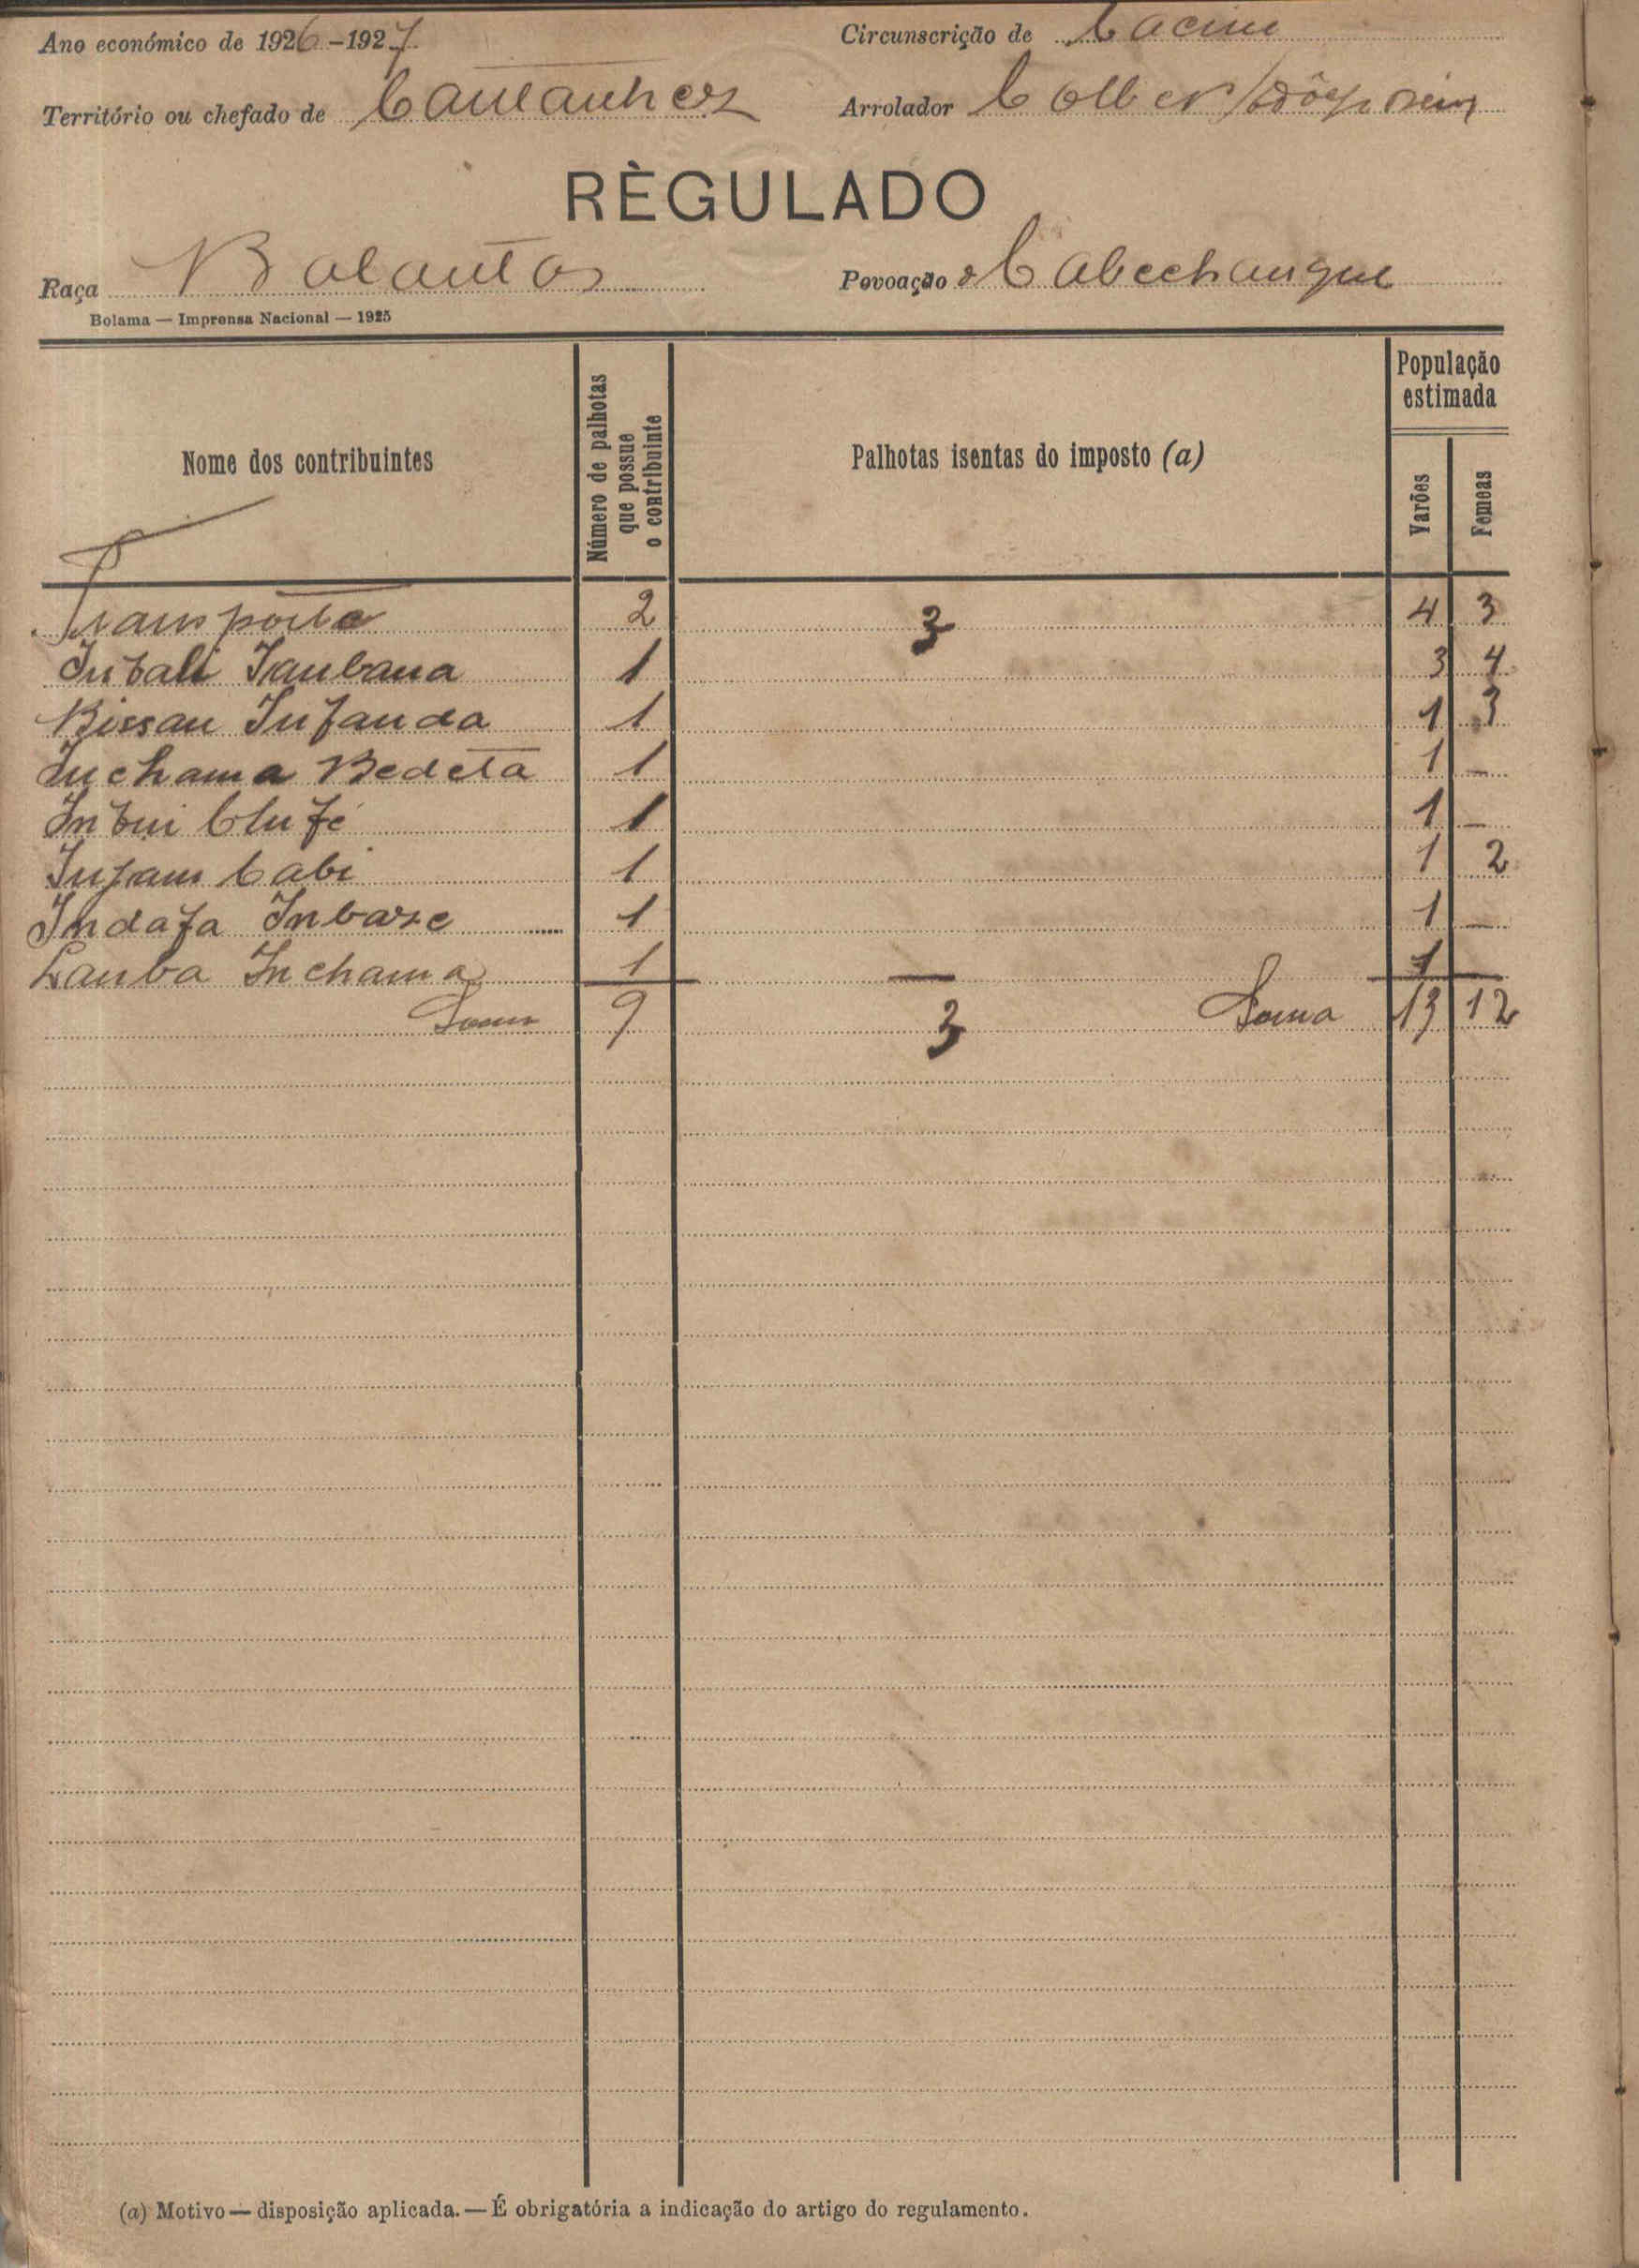 Ano económico de 1926-1927
Circunscrição de Cacine
Território ou chefado de Cantanhez
Arrolador
RÈGULADO
Raça Balantas
Povoação Cabechanque
Bolama — Imprensa Nacional — 1925
Nome dos contribuintes
Número de palhotas que possue o contribuinte
Palhotas isentas do imposto (a)
População estimada
Varões
Femeas
Transporte 2 3 4 3
1 3 4
Bissau Infanda 1 1 3
Inchama Bedeta 1 1 —
Clufé 1 1 —
Cabi 1 1 2
Indafa Inbare 1 1 —
Lanba Inchama 1 — 1 —
Soma 9 3 Soma 13 12
(a) Motivo — disposição aplicada. — É obrigatória a indicação do artigo do regulamento.